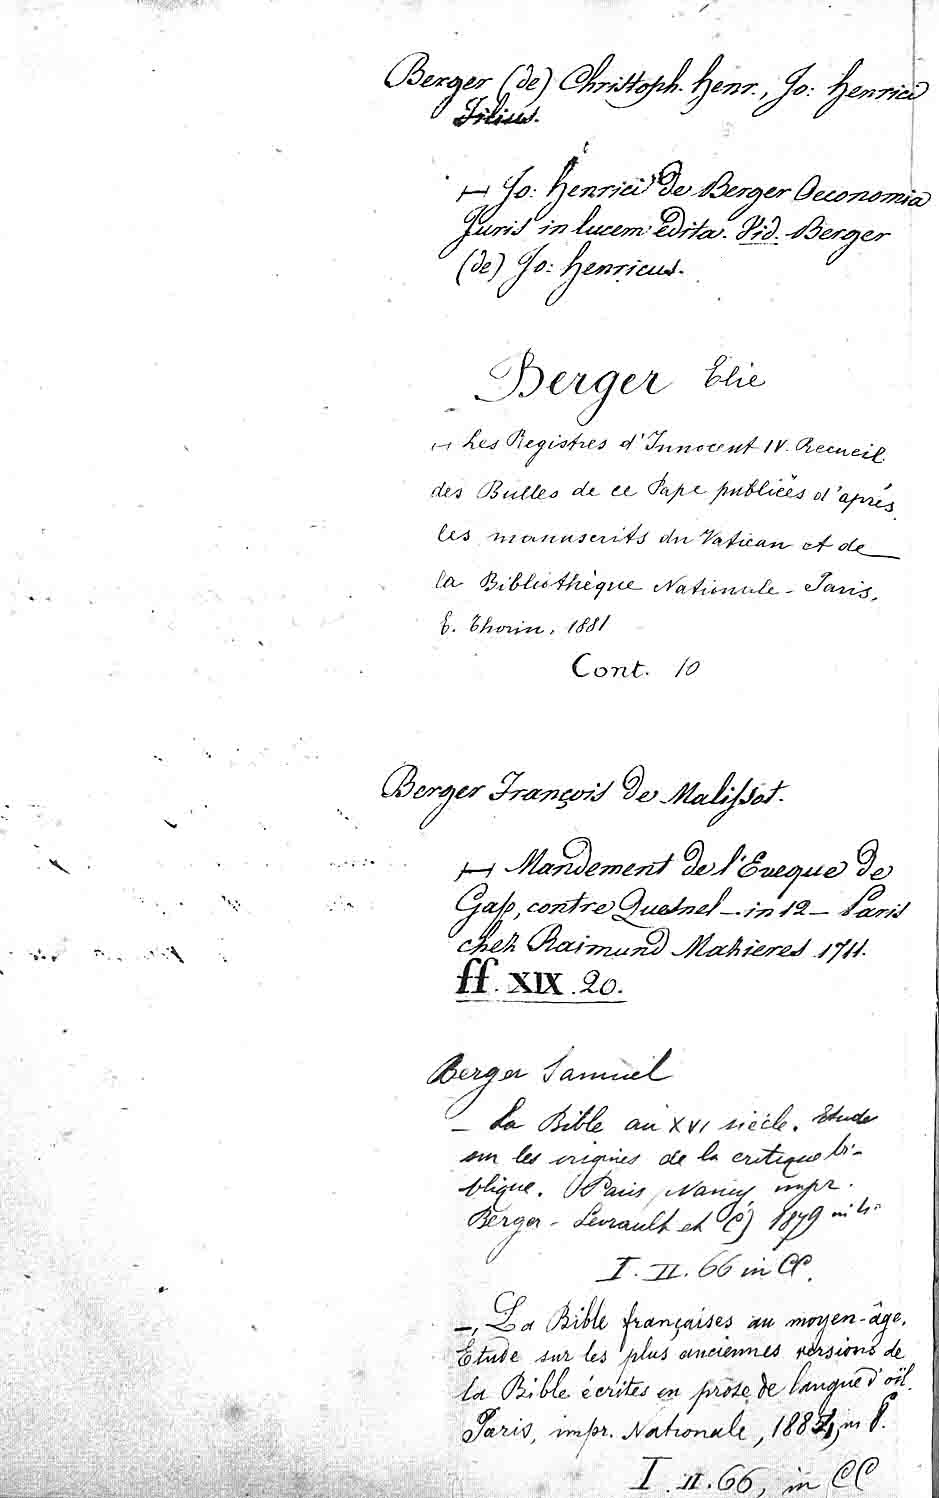 Berger (de) Christoph. Henr., Jo: Henrici
Filius.
⊢ Jo: Henrici de Berger Oeconomia
Juris in lucem edita. Vid. Berger
(de) Jo: Henricus.
Berger Elie
⊢ Les Registres d'Innocent IV. Recueil
des Bulles de ce Pape publiées d'après
les manuscrits du Vatican et de
la Bibliothèque Nationale - Paris,
E. Thorin, 1881
Cont. 10
Berger François de Malissot.
⊢ Mandement de l'Eveque de
Gap, contre Quesnel - in 12 - Paris
chez Raimund Mazieres 1711.
ff. XIX. 20.
Berger Samuel
- La Bible au XVI siècle. Etude
sur les origines de la critique bi-
blique. Paris, Nancy impr.
Berger-Levrault et C) 1879 in 4°
I. II. 66 in CC.
-, La Bible françaises au moyen-âge.
Etude sur les plus anciennes versions de
la Bible écrites en prose de langue d'oïl.
Paris, impr. Nationale, 1884, in 8.
I. II. 66, in CC